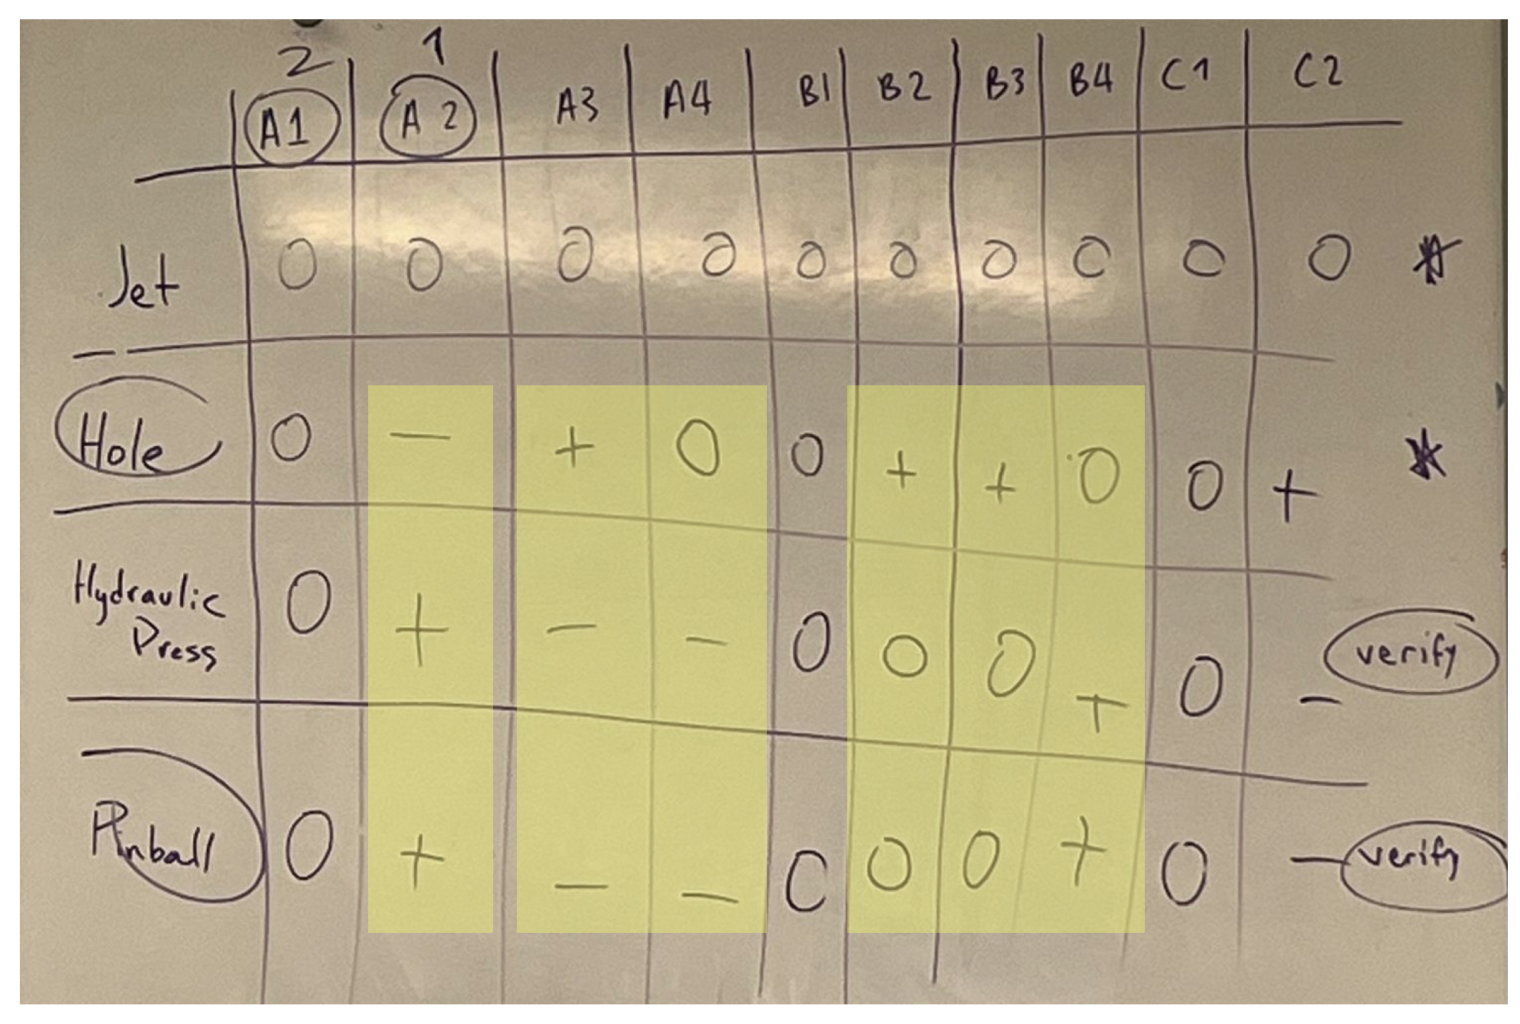 2 1
A1 A2 A3 A4 B1 B2 B3 B4 C1 C2
Jet 0 0 0 0 0 0 0 0 0 0 *
Hole 0 - + 0 0 + + 0 0 + *
Hydraulic
Press 0 + - - 0 0 0 + 0 - verify
Pinball 0 + - - 0 0 0 + 0 - verify